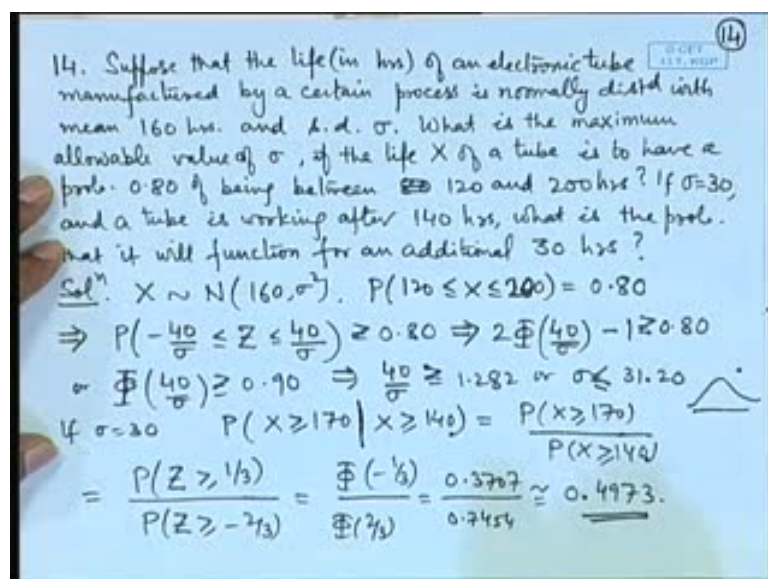 14
© CET
I.I.T. KGP
14. Suppose that the life (in hrs) of an electronic tube
manufactured by a certain process is normally distd with
mean 160 hrs. and s.d. σ. What is the maximum
allowable value of σ, if the life X of a tube is to have a
prob. 0.80 of being between 120 and 200 hrs? If σ=30,
and a tube is working after 140 hrs, what is the prob.
that it will function for an additional 30 hrs?
Solⁿ. X ~ N(160, σ²). P(120 ≤ X ≤ 200) = 0.80
⇒ P(-40/σ ≤ Z ≤ 40/σ) ≥ 0.80 ⇒ 2Φ(40/σ) - 1 ≥ 0.80
or Φ(40/σ) ≥ 0.90 ⇒ 40/σ ≥ 1.282 or σ ≤ 31.20
If σ=30 P(X ≥ 170 | X ≥ 140) = P(X ≥ 170) / P(X ≥ 140)
= P(Z ≥ 1/3) / P(Z ≥ -2/3) = Φ(-1/3) / Φ(2/3) = 0.3707 / 0.7454 ≅ 0.4973.